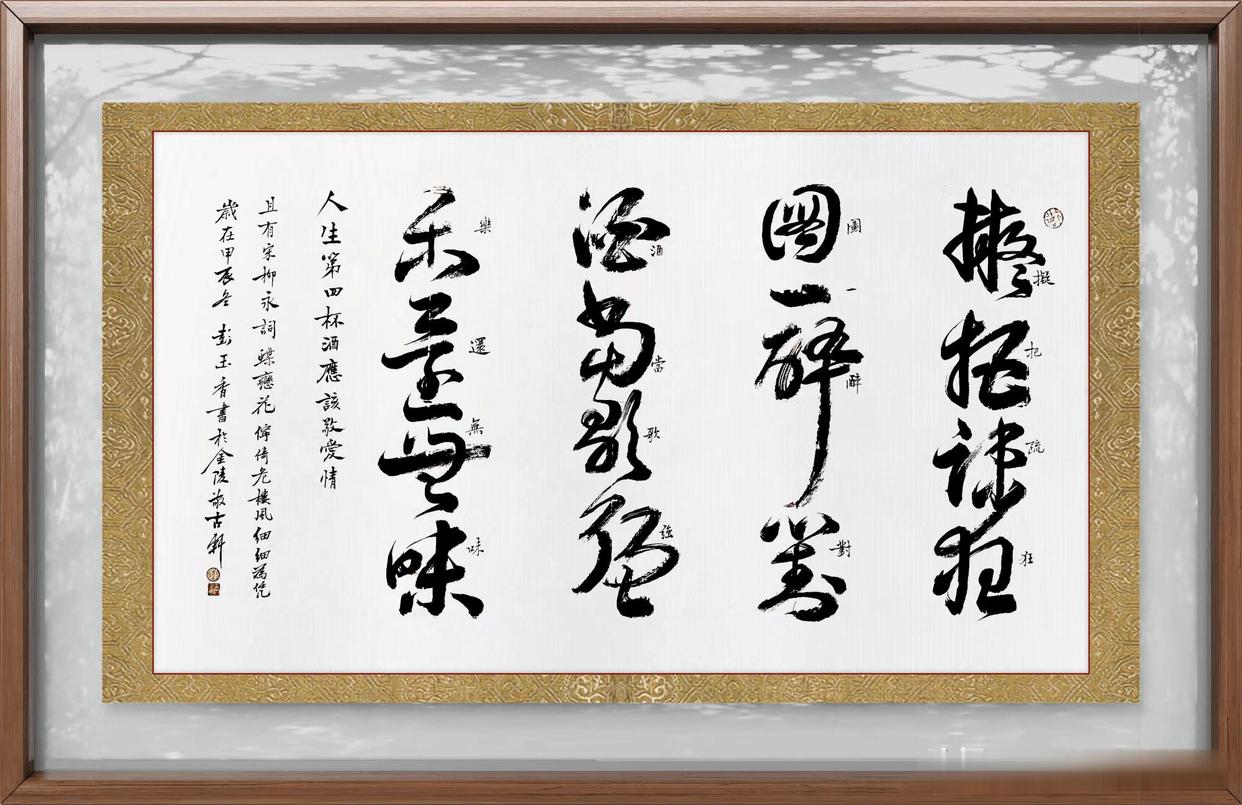 擬把疏狂
擬把疏狂
圖一醉對
圖一醉對
酒當歌強
酒當歌強
樂還無味
樂還無味
人生第四杯酒應該敬愛情
且有宋柳永詞蝶戀花佇倚危樓風細細為憑
歲在甲辰冬 彭玉香書於金陵